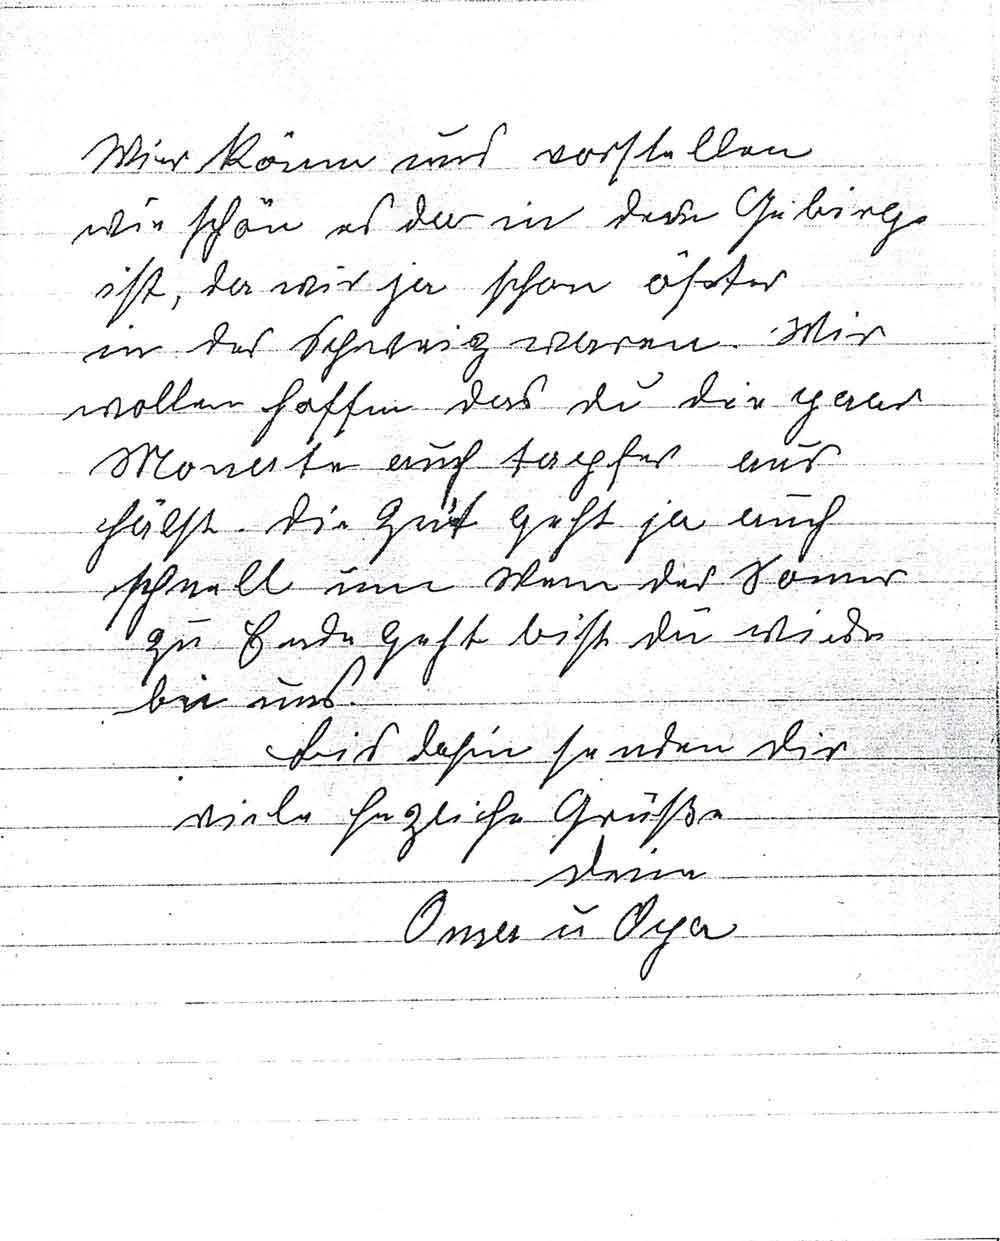 Wier könn uns vorstellen
wie schön es da in dem Gebirge
ist, da wir ja schon öfter
in der Schweiz waren. Wir
wollen hoffen das du die paar
Monate auch tapfer aus
hälst. Die Zeit geht ja auch
schnell um Wenn der Somer
zu Ende geht bist du wieder
bei uns.
Bis dahin senden dir
viele hezliche Grüße
deine
Oma u Opa